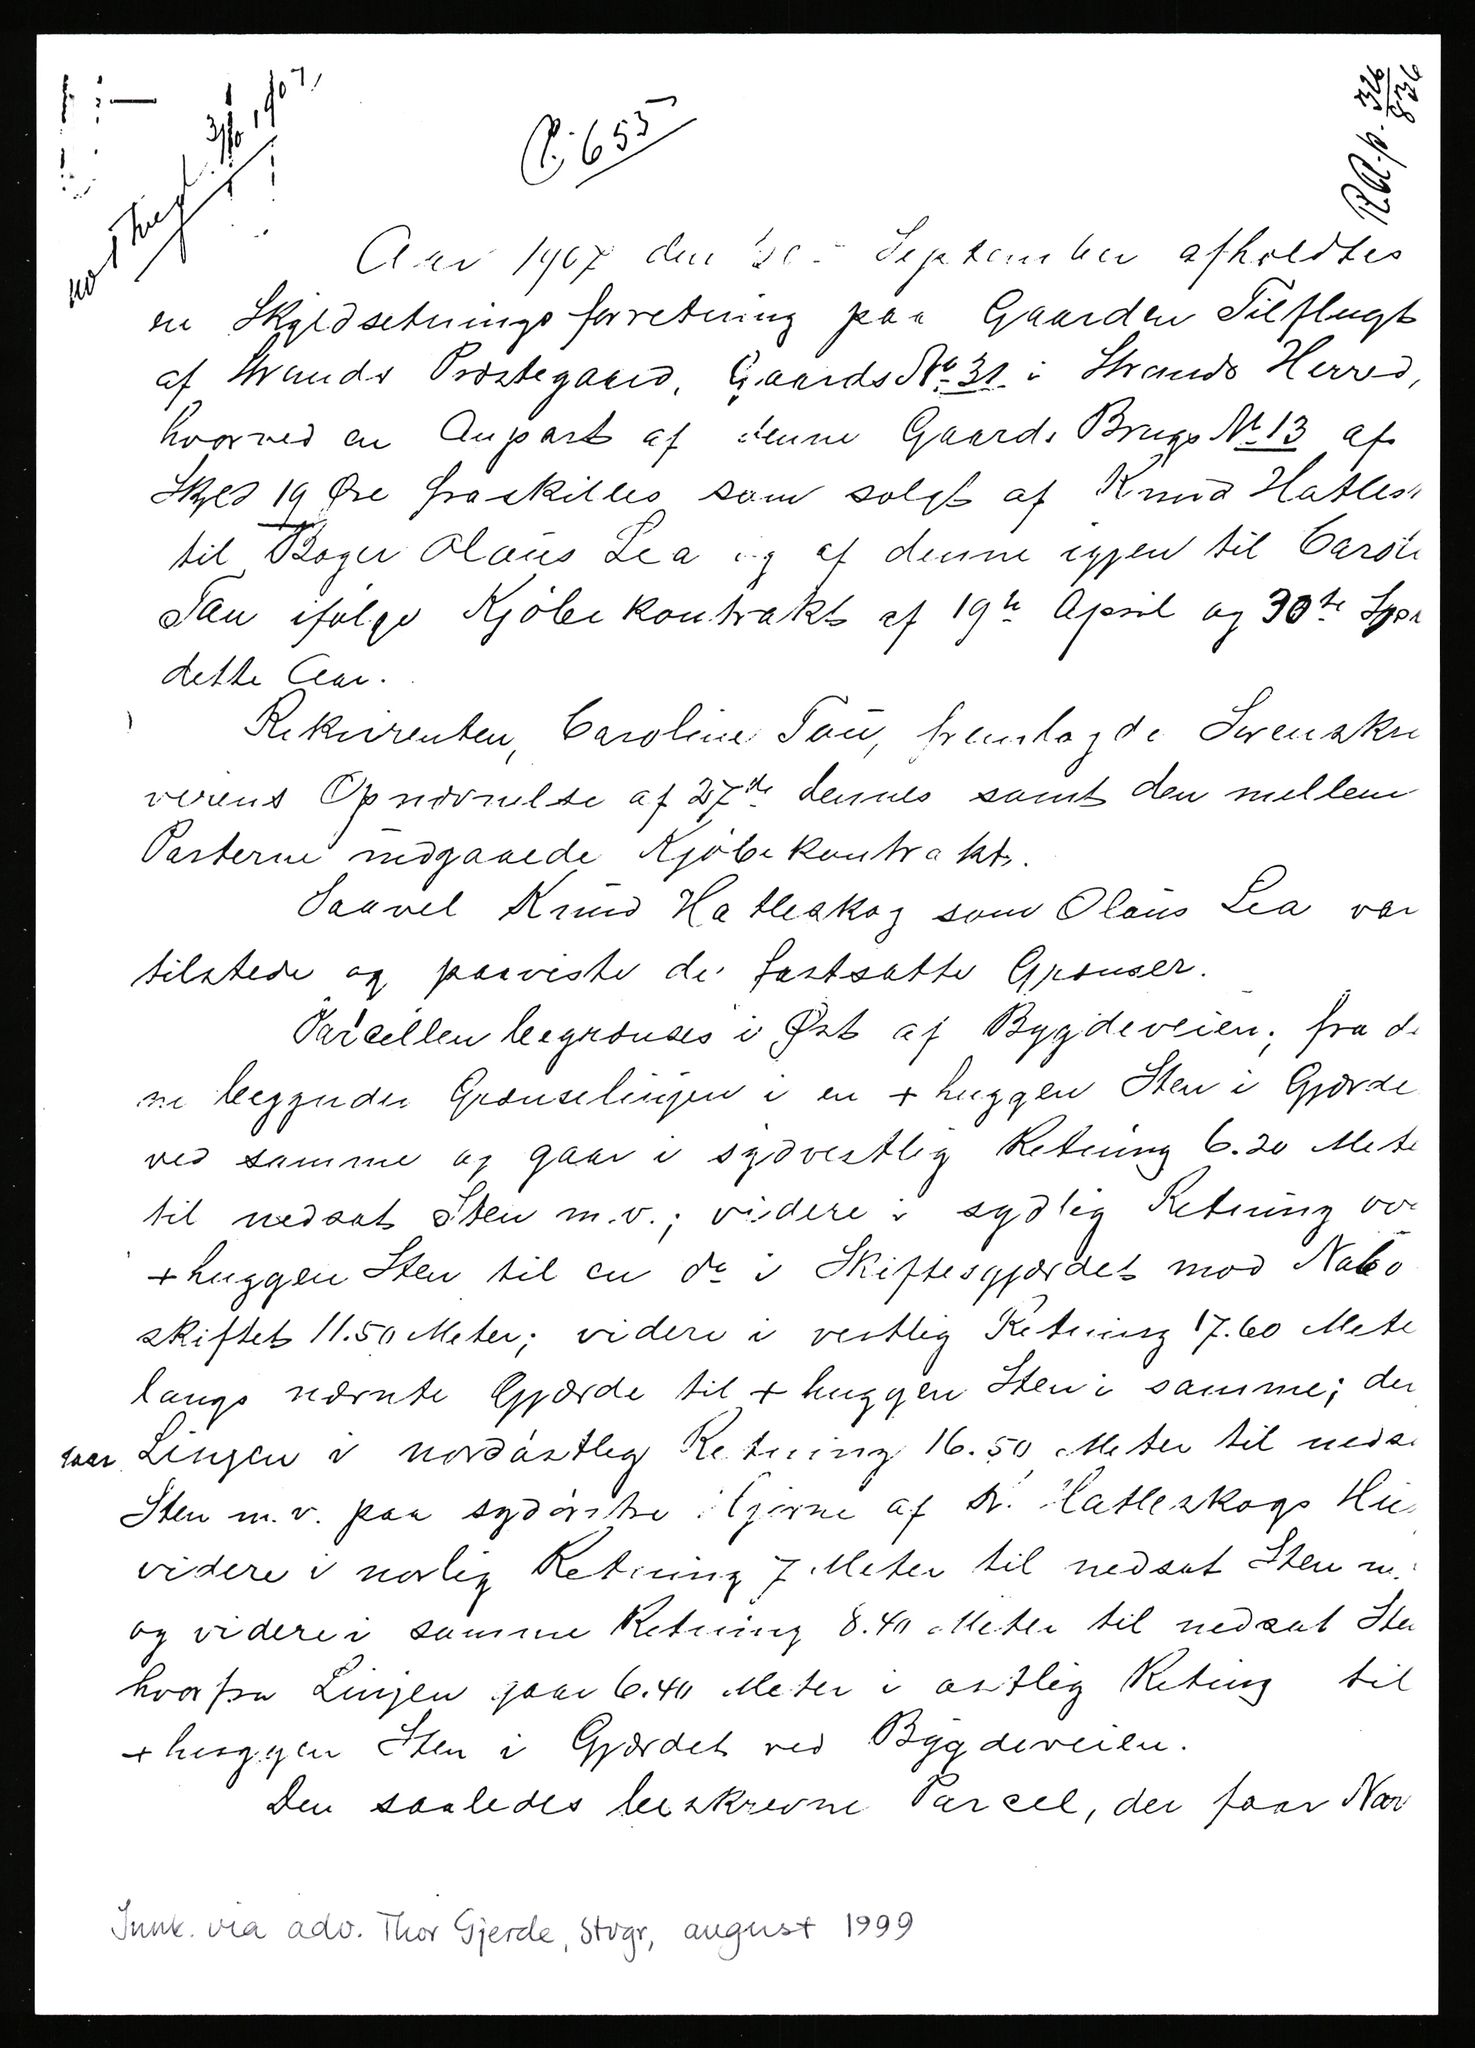 P. 653
R.A. p. 326
836
Aar 1907 den 30 September afholdtes
en Skyldsetningsforretning paa Gaarden Tilflugt
af Strands Præstegaard, Gaards No 31 i Strands Herred,
hvorved en Anpart af denne Gaards Brugs No 13 af
Skyld 19 Øre fraskilles som solgt af Knud Hatles
til Bager Olaus Lea og af denne igjen til Caroli
Tau ifølge Kjøbekontrakt af 19de April og 30te
dette Aar.
Rekvirenten, Caroline Tau, fremlagde Sorenskri
verens Opnævnelse af 27de dennes samt den mellem
Parterne indgaaede Kjøbekontrakt.
Saavel Knud Hatleskog som Olaus Lea var
tilstede og paaviste de fastsatte Grænser.
Parcellen begrænses i Øst af Bygdeveien; fra de
ne begynder Grænselinjen i en + huggen Sten i Gjærde
ved samme og gaar i sydvestlig Retning 6.20 Mete
til nedsat Sten m.v.; videre i sydlig Retning ove
+ huggen Sten til en do i Skiftesgjærdet mod Nabo
skiftet 11.50 Meter; videre i vestlig Retning 17.60 Mete
langs nævnte Gjærde til + huggen Sten i samme; der
Linjen i nordøstlig Retning 16.50 Meter til nedsa
Sten m.v. paa sydøstre Hjørne af K. Hatleskogs Hu
videre i norlig Retning 7 Meter til nedsat Sten m.
og videre i samme Retning 8.40 Meter til nedsat Ste
hvorfra Linjen gaar 6.40 Meter i østlig Retning til
+ huggen Sten i Gjærdet ved Bygdeveien.
Den saaledes beskrevne Parcel, der faar Nav
Innk. via adv. Thor Gjerde, Stvgr, august 1999